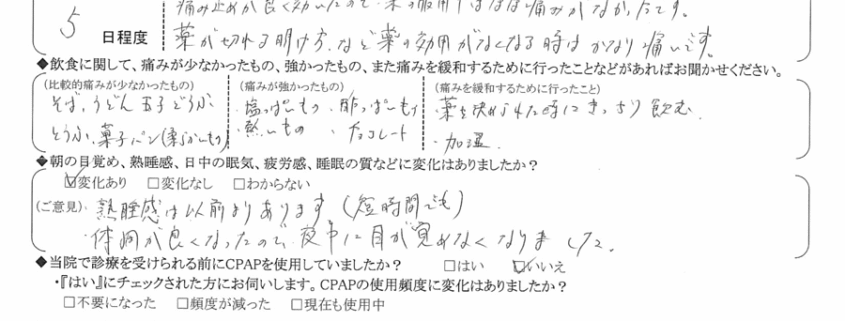 痛み止めが良く効いたので、薬の服用中はほぼ痛みがなかったです。
5 日程度 薬が切れる明け方など薬の効用がなくなる時はかなり痛いです。
◆飲食に関して、痛みが少なかったもの、強かったもの、また痛みを緩和するために行ったことなどがあればお聞かせください。
(比較的痛みが少なかったもの) (痛みが強かったもの) (痛みを緩和するために行ったこと)
そば、うどん 玉子どうふ ・塩っぱいもの ・酢っぱいもの ・薬を決められた時にきっちり飲む。
とうふ、菓子パン(柔らかいもの) ・熱いもの ・チョコレート ・加湿
◆朝の目覚め、熟睡感、日中の眠気、疲労感、睡眠の質などに変化はありましたか?
☑変化あり □変化なし □わからない
(ご意見)・熟睡感は以前よりあります(短時間でも)
・体調が良くなったので、夜中に目が覚めなくなりました。
◆当院で診療を受けられる前にCPAPを使用していましたか? □はい ☑いいえ
・『はい』にチェックされた方にお伺いします。CPAPの使用頻度に変化はありましたか?
□不要になった □頻度が減った □現在も使用中